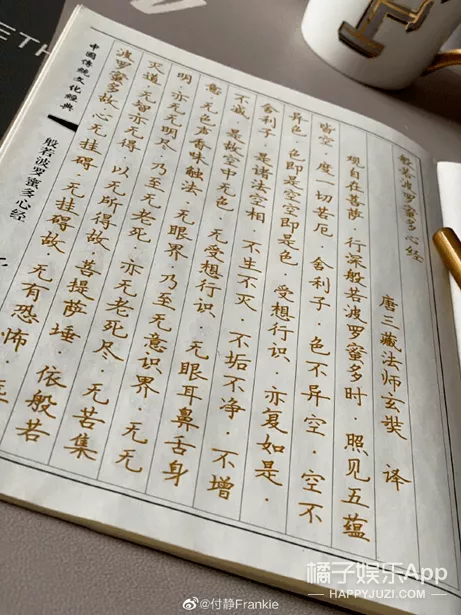 般若波罗蜜多心经
唐三藏法师玄奘 译
观自在菩萨·行深般若波罗蜜多时·照见五蕴
皆空·度一切苦厄·舍利子·色不异空·空不
异色·色即是空空即是色·受想行识·亦复如是·
舍利子·是诸法空相·不生不灭·不垢不净·不增
不减·是故空中无色·无受想行识·无眼耳鼻舌身
意·无色声香味触法·无眼界·乃至无意识界 无无
明·亦无无明尽·乃至无老死·亦无老死尽·无苦集
灭道·无智亦无得·以无所得故·菩提萨埵·依般若
波罗蜜多故·心无挂碍·无挂碍故·无有恐怖·
中國傳統文化經典
般若波罗蜜多心经
ETH
橘子娱乐App
HAPPYJUZI.COM
@付静Frankie